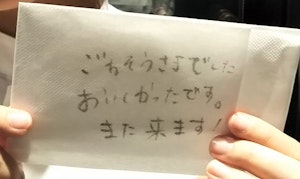 ごちそうさまでした
おいしかったです。
また来ます!